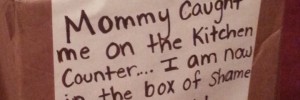 Mommy Caught
me on the Kitchen
Counter.... I am now
in the box of Shame